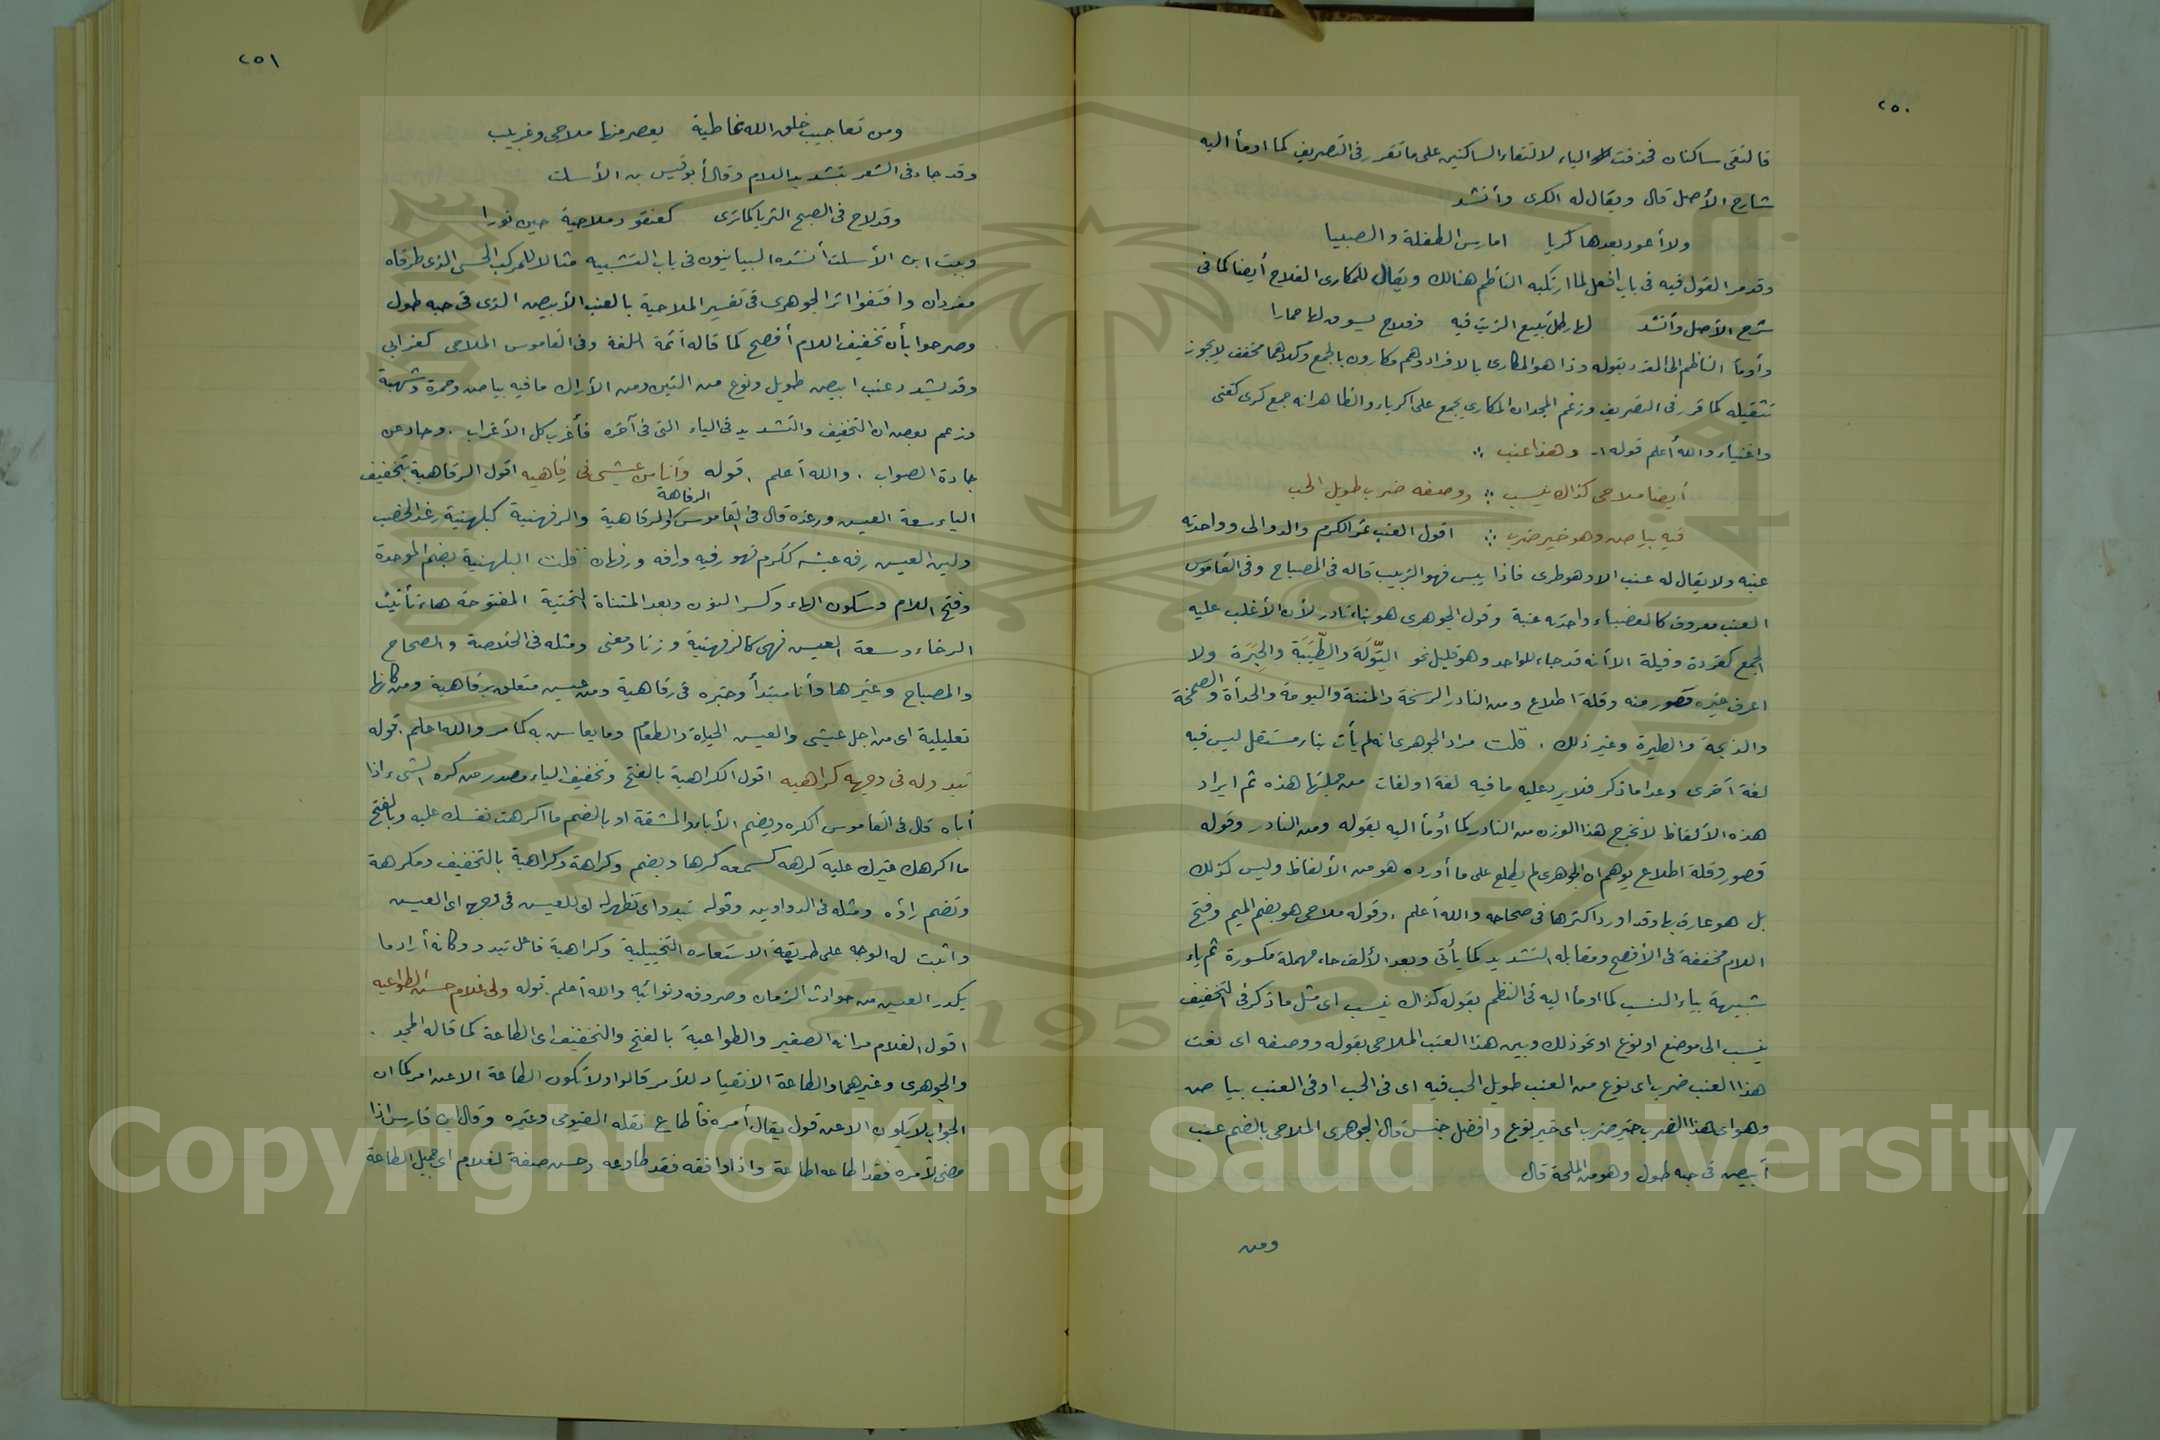 ٢٥٠
فالتقى ساكنان فحذفت الياء لالتقاء الساكنين على ما تقرر في التصريف كما اومأ اليه
شارح الأصل قال ويقال له الكرى وأنشد
ولا أعود بعدها كريا امارس الطفلة والصبيا
وقد مر القول فيه في باب افعل لما ارتكبه الناظم هنالك ويقال للمكارى الفلاح أيضا كما في
شرح الأصل وأنشد لها رطل تبيع الزيت فيه وفلاح يسوق لها حمارا
وأومأ الناظم الى المفرد بقوله وذا هو المكارى بالافراد وهم مكارون بالجمع وكلاهما مخفف لا يجوز
تثقيله كما قرر في التصريف وزعم المجد ان المكارى يجمع على اكرياء والظاهر انه جمع كرى كغنى
واغنياء والله أعلم قوله وهذا عنب
أيضا ملاحى كذاك ينسب ووصفه ضرب طويل الحب
فيه بياض وهو خير ضرب اقول العنب ثمر الكرم والدوالى وواحدته
عنبة ولا يقال له عنب الا وهو طرى فاذا يبس فهو الزبيب قاله في المصباح وفي القاموس
العنب معروف كالعضباء واحدته عنبة وقول الجوهرى هو بناء نادر لأن الأغلب عليه
الجمع كقردة وفيلة الا أنه قد جاء للواحد وهو قليل نحو التِّوَلَة والطِّيَبَة والحِبَرَة ولا
اعرف غيره قصور منه وقلة اطلاع ومن النادر الزمخة والمننة والثومة والحدأة والصمخة
والذبحة والطيرة وغير ذلك . قلت مراد الجوهرى انه لم يأت بناء مستقل ليس فيه
لغة أخرى وعدا ما ذكر فلا يرد عليه ما فيه لغة او لغات من جملتها هذه ثم ايراد
هذه الألفاظ لا تخرج هذا الوزن من النادر كما أومأ اليه بقوله ومن النادر وقوله
قصور وقلة اطلاع يوهم ان الجوهرى لم يطلع على ما أورده هو من الألفاظ وليس كذلك
بل هو عارف بها وقد اورد اكثرها في صحاحه والله أعلم . وقوله ملاحى هو بضم الميم وفتح
اللام مخففة في الأفصح ومقابله التشديد كما يأتى وبعد الألف حاء مهملة مكسورة ثم ياء
شبيهة بياء النسب كما اومأ اليه في النظم بقوله كذاك ينسب اى مثل ما ذكر في التخفيف
ينسب الى موضع او نوع او نحو ذلك وبين هذا العنب الملاحى بقوله ووصفه اى نعت
هذا العنب ضرب اى نوع من العنب طويل الحب فيه اى في الحب او في العنب بياض
وهو اى هذا الضرب خير ضرب اى خير نوع وافضل جنس قال الجوهرى الملاحى بالضم عنب
أبيض في حبه طول وهو من الملحة قال
ومن
٢٥١
ومن تعاجيب خلق الله غاطية يعصر منها ملاحى وغربيب
وقد جاء في الشعر بتشديد اللام وقال أبو قيس بن الأسلت
وقد لاح في الصبح الثريا كما ترى كعنقود ملاحية حين نورا
وبيت ابن الأسلت أنشده البيانيون في باب التشبيه مثالا للمركب الحسى الذى طرفاه
مفردان واقتفوا اثر الجوهرى في تفسير الملاحية بالعنب الأبيض الذى في حبه طول
وصرحوا بأن تخفيف اللام أفصح كما قاله أئمة اللغة وفي القاموس الملاحى كغرابى
وقد يشدد عنب ابيض طويل ونوع من التين ومن الأراك ما فيه بياض وحمرة وشهبة
وزعم بعض ان التخفيف والتشديد في الياء التى في آخره فأغرب كل الأغراب . وحاد عن
جادة الصواب . والله أعلم . قوله وأنا من عيشى في رفاهيه اقول الرفاهية بتخفيف
الياء سعة العيش ورغده قال في القاموس الرفاهة والرفاهية والرفهنية كبلهنية رغد الخصب
ولين العيش رفه عيشه ككرم فهو رفيه ورافه ورفهان قلت البلهنية بضم الموحدة
وفتح اللام وسكون الهاء وكسر النون وبعد المثناة التحتية المفتوحة هاء تأنيث
الرخاء وسعة العيش فهى كالرفهنية وزنا ومعنى ومثله في الخلاصة والصحاح
والمصباح وغيرها وأنا مبتدأ وخبره في رفاهية ومن عيش متعلق برفاهية ومن كأنها
تعليلية اى من اجل عيشى والعيش الحياة والطعام وما يعاش به كما مر والله اعلم . قوله
تبدو له في وجهه كراهيه اقول الكراهية بالفتح وتخفيف الياء مصدر من كره الشىء اذا
أباه قال في القاموس الكره ويضم الأباء والمشقة او بالضم ما اكرهت نفسك عليه وبالفتح
ما اكرهك غيرك عليه كرهه كسمعه كرها ويضم وكراهة وكراهية بالتخفيف ومكرهة
وتضم راؤه ومثله في الدواوين وقوله تبدو اى تظهر له اى للعيش في وجهه اى العيش
واثبت له الوجه على طريقة الاستعاره التخييلية وكراهية فاعل تبدو وكانه أراد ما
يكدر العيش من حوادث الزمان وصروفه ونوائبه والله أعلم . قوله ولى غلام حسن الطواعيه
اقول الغلام مر انه الصغير والطواعية بالفتح والتخفيف اى الطاعة كما قاله المجد .
والجوهرى وغيرهما والطاعة الانقياد للأمر قالوا ولا تكون الطاعة الا عن امر كما ان
الجواب لا يكون الا عن قول يقال أمره فأطاع نقله الفيومى وغيره وقال ابن فارس اذا
مضى لأمره فقد اطاعه اطاعة واذا وافقه فقد طاوعه وحسن صفة لغلام اى جميل الطاعة
Copyright © King Saud University
1957